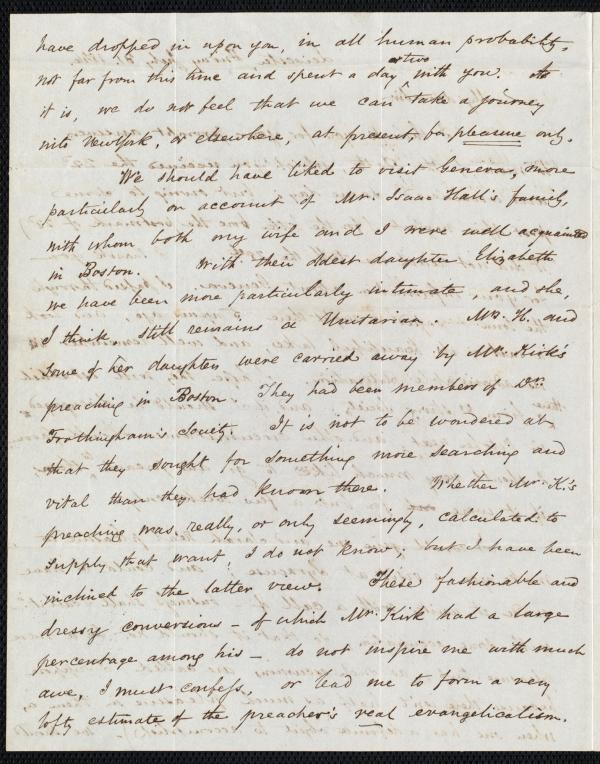 have dropped in upon you, in all human probability,
not far from this time and spent a day or two with you. As
it is, we do not feel that we can take a journey
into New York, or elsewhere, at present, for pleasure only.
We should have liked to visit Geneva, more
particularly on account of Mr. Isaac Hall's family,
with whom both my wife and I were well acquainted
in Boston. With their oldest daughter Elizabeth
we have been more particularly intimate, and she,
I think, still remains a Unitarian. Mrs. H. and
some of her daughters were carried away by Mr. Kirk's
preaching in Boston. They had been members of Dr.
Frothingham's Society. It is not to be wondered at
that they sought for something more searching and
vital than they had known there. Whether Mr. K.'s
preaching was really, or only seemingly, calculated to
supply that want, I do not know; but I have been
inclined to the latter view. These fashionable and
dressy conversions - of which Mr. Kirk had a large
percentage among his - do not inspire me with much
awe, I must confess, or lead me to form a very
lofty estimate of the preacher's real evangelicalism.